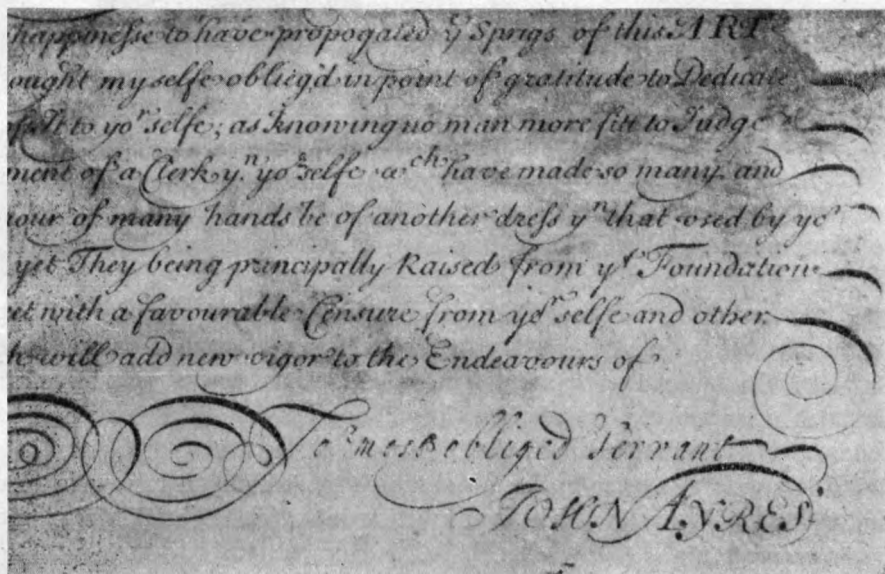 happinesse to have propogated yͤ Sprigs of this ART
ought my selfe oblieg'd in point of gratitude to Dedicate
It to yoʳ selfe; as knowing no man more fitt to Judge
ment of a Clerk yⁿ yoʳ selfe wᶜʰ have made so many and
our of many hands be of another dress yⁿ that vsed by yoʳ
yet They being principally Raised from yᵗ Foundation
et with a favourable Censure from yoʳ selfe and other
h will add new vigor to the Endeavours of
Yoʳ most obliged Servant
JOHN AYRES